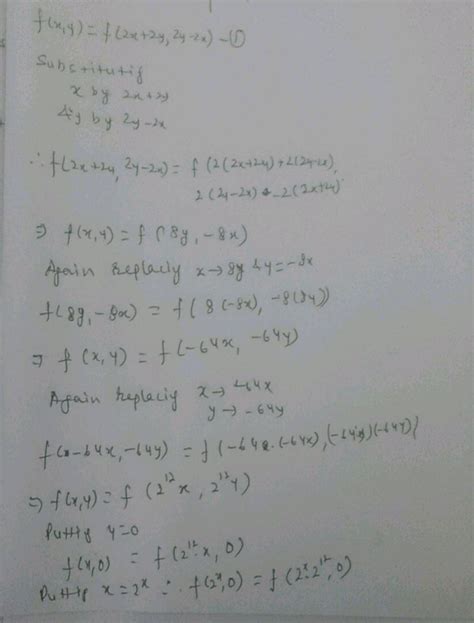 f(x,y) = f(2x+2y, 2y-2x) - ①
Substitutig
x by 2x+2y
& y by 2y-2x
∴ f(2x+2y, 2y-2x) = f(2(2x+2y)+2(2y-2x),
2(2y-2x) - 2(2x+2y)
⇒ f(x,y) = f(8y, -8x)
Again Replacig x→8y & y=-8x
f(8y,-8x) = f(8(-8x), -8(8y))
⇒ f(x,y) = f(-64x, -64y)
Again Replacig x→ -64x
y→ -64y
f(-64x, -64y) = f(-64.(-64x), (-64)(-64y)}
⇒ f(x,y) = f(2¹²x, 2¹²y)
Puttig y=0
f(x,0) = f(2¹².x, 0)
Puttig x=2ˣ ∴ f(2ˣ,0) = f(2ˣ.2¹²,0)